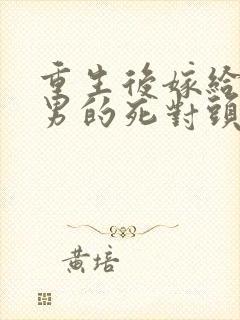 重生後嫁給
男的死對頭
黃培